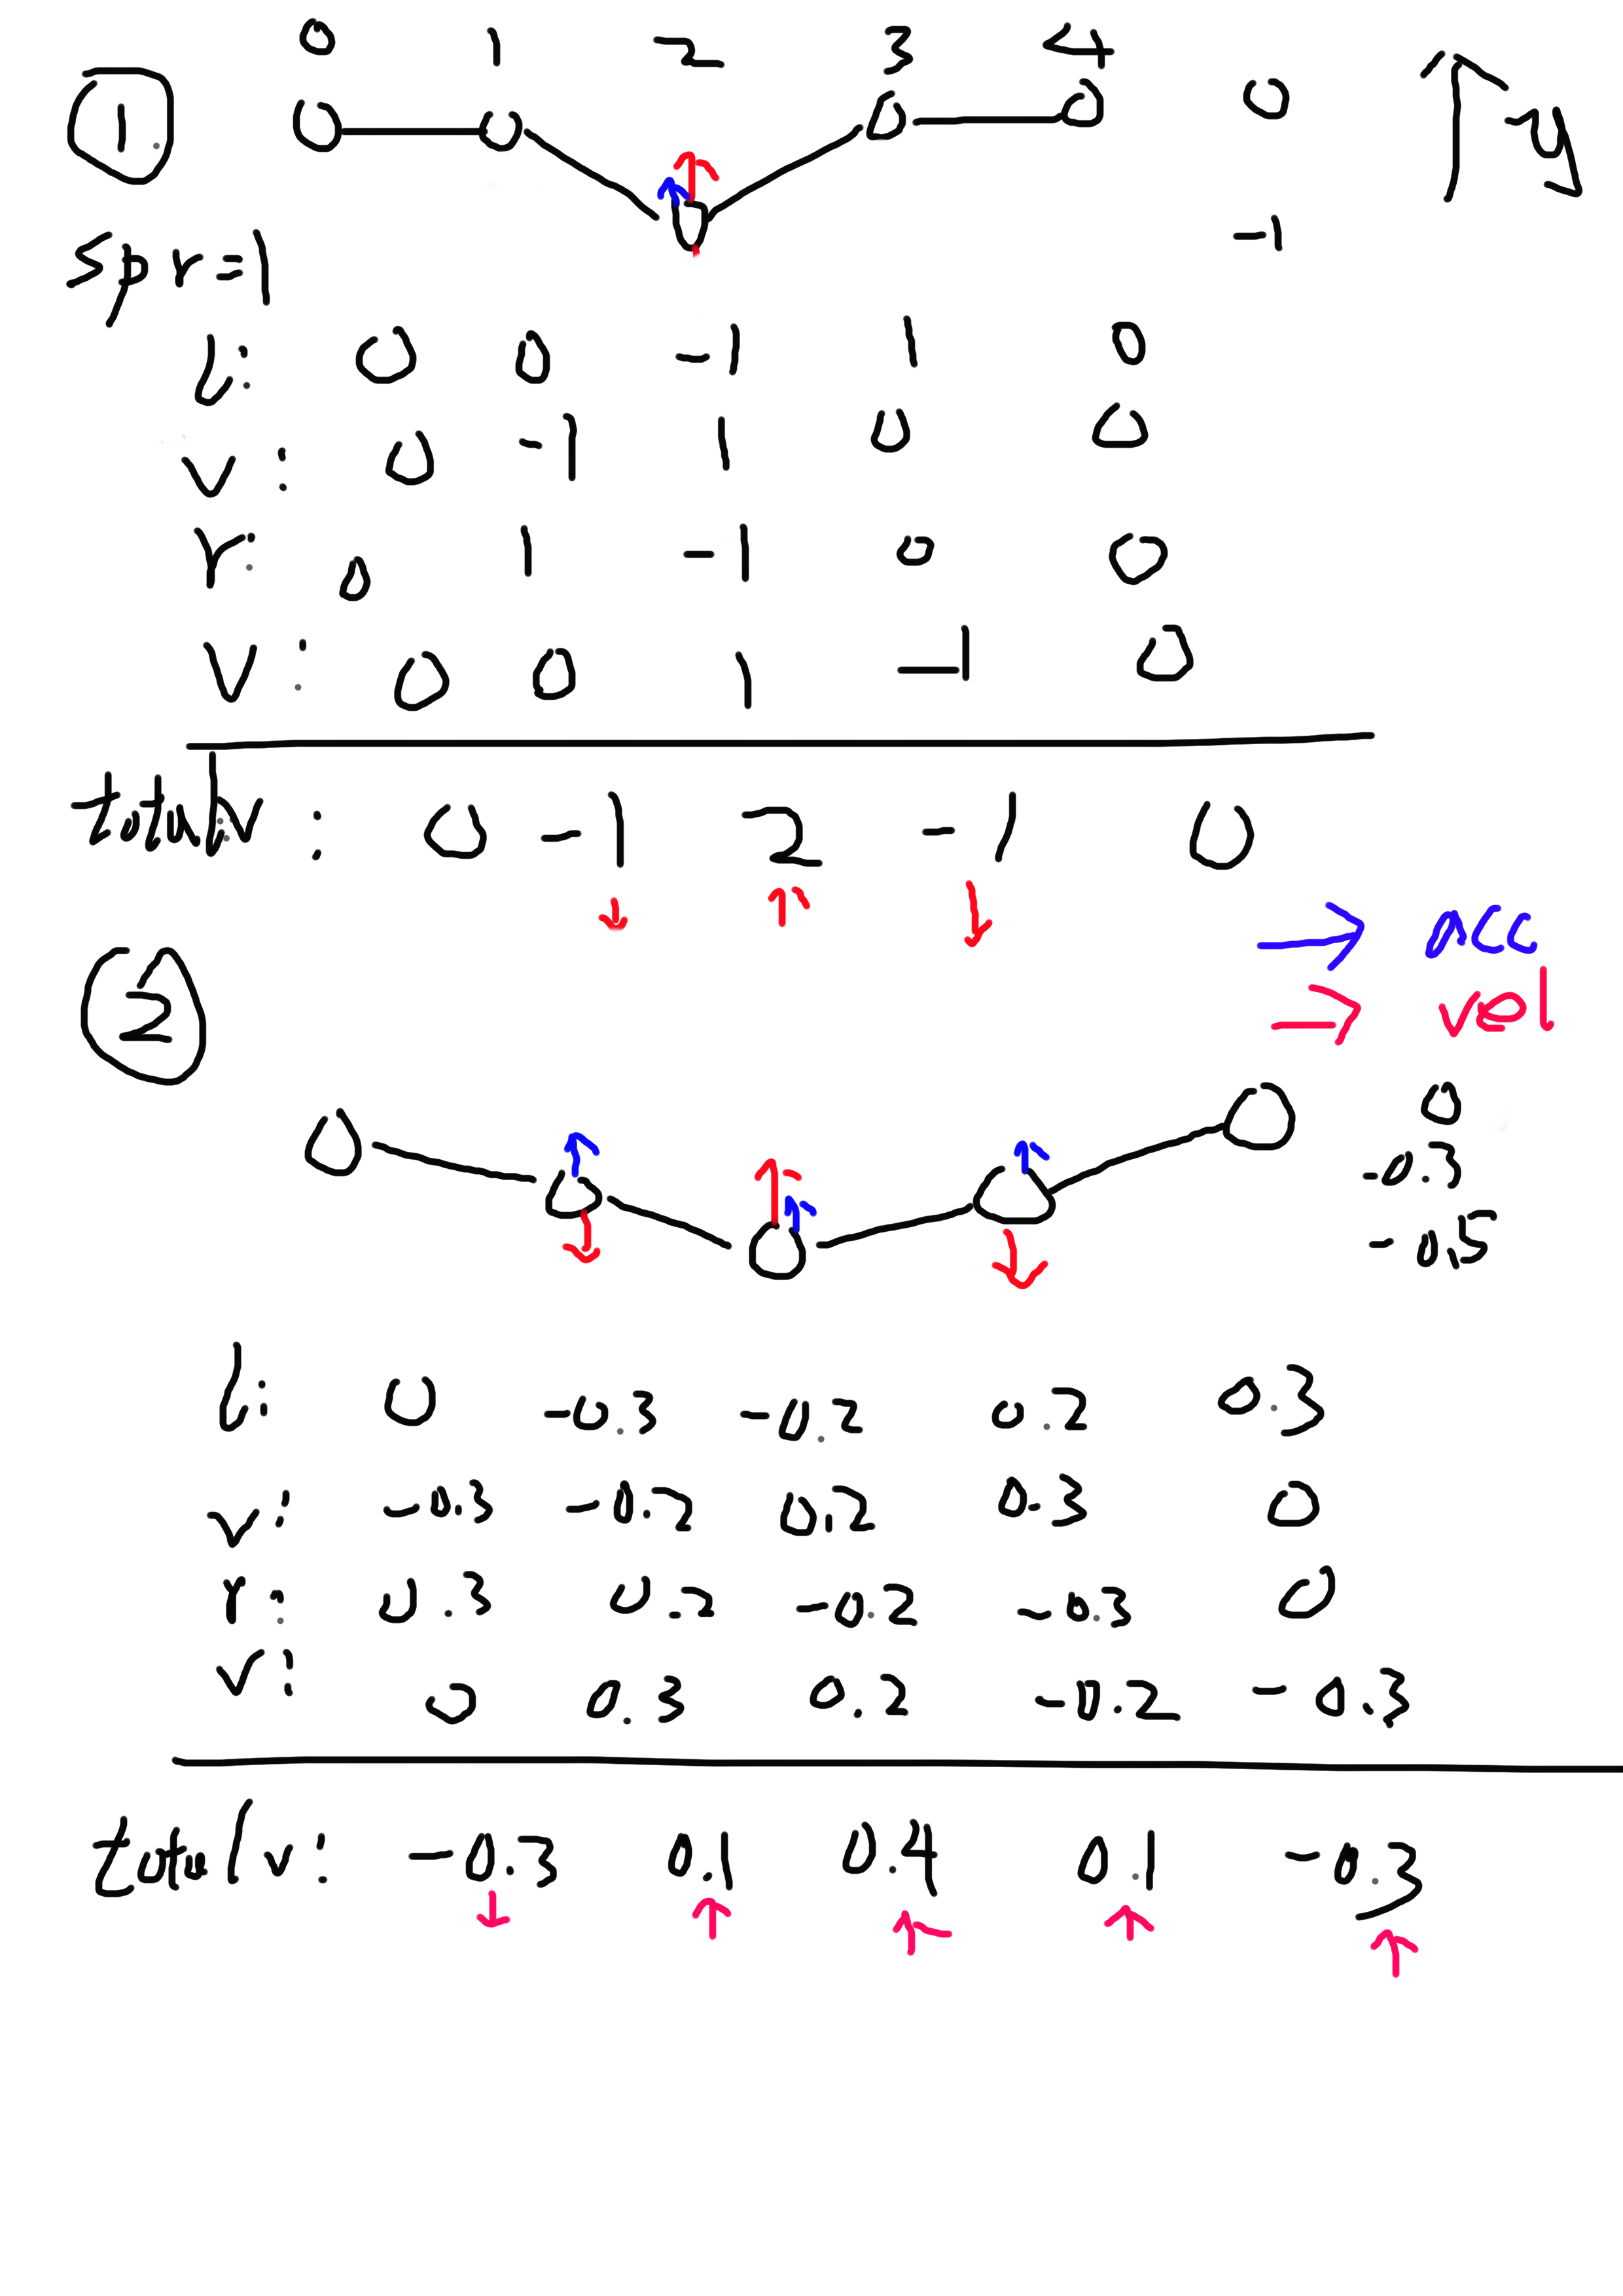 0 1 2 3 4
1. 0 y
-1
spr=1
l: 0 0 -1 1 0
v: 0 -1 1 0 0
r: 0 1 -1 0 0
v: 0 0 1 -1 0
total v: 0 -1 2 -1 0
→ acc
→ vel
2
0
-0.3
-0.5
l: 0 -0.3 -0.2 0.2 0.3
v: -0.3 -0.2 0.2 0.3 0
r: 0.3 0.2 -0.2 -0.3 0
v: 0 0.3 0.2 -0.2 -0.3
total v: -0.3 0.1 0.4 0.1 -0.3